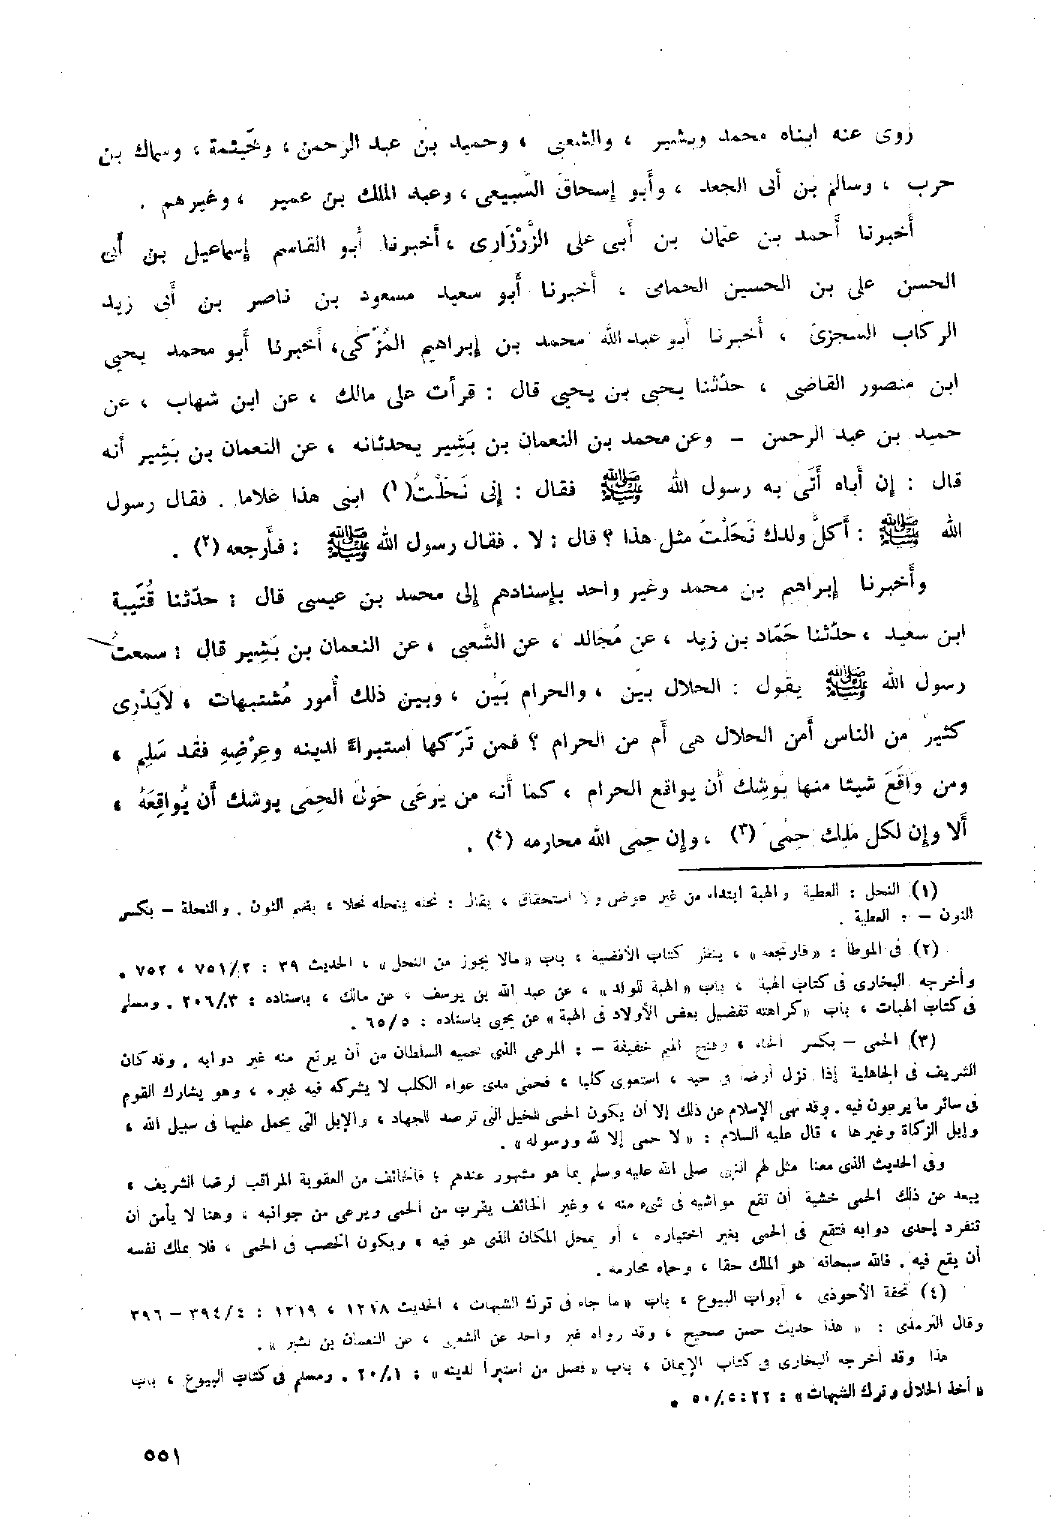 روى عنه ابناه محمد وبشير ، والشعبى ، وحميد بن عبد الرحمن ، وخَيثمة ، وسماك بن
حرب ، وسالم بن أبى الجعد ، وأبو إسحاق السَّبيعى ، وعبد الملك بن عمير ، وغيرهم .
أخبرنا أحمد بن عثمان بن أبى على الزُّرْزَارى ، أخبرنا أبو القاسم إسماعيل بن أبى
الحسن على بن الحسين الحمامى ، أخبرنا أبو سعيد مسعود بن ناصر بن أبى زيد
الركاب السجزىّ ، أخبرنا أبو عبد الله محمد بن إبراهيم المُزَكِّى ، أخبرنا أبو محمد يحيى
ابن منصور القاضى ، حدّثنا يحيى بن يحيى قال : قرأت على مالك ، عن ابن شهاب ، عن
حميد بن عبد الرحمن – وعن محمد بن النعمان بن بَشِير يحدثانه ، عن النعمان بن بَشِير أنه
قال : إن أباه أَتَى به رسول الله ﷺ فقال : إنى نَحَلْتُ(١) ابنى هذا غلاما . فقال رسول
الله ﷺ : أكلَّ ولدك نَحَلْتَ مثل هذا ؟ قال : لا . فقال رسول الله ﷺ : فأرجعه (٢) .
وأخبرنا إبراهيم بن محمد وغير واحد بإسنادهم إلى محمد بن عيسى قال : حدّثنا قُتَيبة
ابن سعيد ، حدّثنا حَمّاد بن زيد ، عن مُجَالد ، عن الشَّعبى ، عن النعمان بن بَشِير قال : سمعتُ
رسول الله ﷺ يقول : الحلال بيّن ، والحرام بَيّن ، وبين ذلك أمور مُشتبهات ، لاَيَدْرى
كثيرٌ من الناس أمن الحلال هى أم من الحرام ؟ فمن تَرَكها استبراءً لدينه وعِرْضِهِ فقد سَلِم ،
ومن وَاقَعَ شيئا منها يُوشِك أن يواقع الحرام ، كما أنه من يَرعَى حَولَ الحِمَى يوشك أن يُواقِعَهُ ،
ألا وإن لكل مَلِك حِمًى (٣) ، وإن حِمى الله محارمه (٤) .
(١) النحل : العطية والهبة ابتداء من غير عوض ولا استحقاق ، يقال : نحله ينحله نحلا ، بضم النون . والنحلة – بكسر
النون – : العطية .
(٢) فى الموطأ : «فارتجعه» ، ينظر كتاب الأقضية ، باب «مالا يجوز من النحل» ، الحديث ٣٩ : ٧٥١/٢ ، ٧٥٢ .
وأخرجه البخارى فى كتاب الهبة ، باب «الهبة للولد» ، عن عبد الله بن يوسف ، عن مالك ، بإسناده : ٢٠٦/٣ . ومسلم
فى كتاب الهبات ، باب «كراهته تفضيل بعض الأولاد فى الهبة» عن يحيى بإسناده : ٦٥/٥ .
(٣) الحمى – بكسر الحاء ، وفتح الميم خفيفة – : المرعى الذى حميه السلطان من أن يرتع منه غير دوابه . وقد كان
الشريف فى الجاهلية إذا نزل أرضا فى حيه ، استعوى كلبا ، فحمى مدى عواء الكلب لا يشركه فيه غيره ، وهو يشارك القوم
فى سائر ما يرعون فيه . وقد نهى الإسلام عن ذلك إلا أن يكون الحمى للخيل التى ترصد للجهاد ، والإبل التى يحمل عليها فى سبيل الله ،
وإبل الزكاة وغيرها ، قال عليه السلام : « لا حمى إلا لله ورسوله » .
وفى الحديث الذى معنا مثل لهم النبى صلى الله عليه وسلم بما هو مشهور عندهم ؛ فالخائف من العقوبة المراقب لرضا الشريف ،
يبعد عن ذلك الحمى خشية أن تقع مواشيه فى شىء منه ، وغير الخائف يقرب من الحمى ويرعى من جوانبه ، وهنا لا يأمن أن
تنفرد إحدى دوابه فتقع فى الحمى بغير اختياره ، أو يمحل المكان الذى هو فيه ، ويكون الخصب فى الحمى ، فلا يملك نفسه
أن يقع فيه . فالله سبحانه هو الملك حقا ، وحماه محارمه .
(٤) تحفة الأحوذى ، أبواب البيوع ، باب «ما جاء فى ترك الشبهات ، الحديث ١٢١٨ ، ١٢١٩ : ٣٩٤/٤ – ٣٩٦
وقال الترمذى : « هذا حديث حسن صحيح ، وقد رواه غير واحد عن الشعبى ، عن النعمان بن بشير » .
هذا وقد أخرجه البخارى فى كتاب الإيمان ، باب « فضل من استبرأ لدينه » : ٢٠/١ . ومسلم فى كتاب البيوع ، باب
« أخذ الحلال وترك الشبهات » :
٥٥١